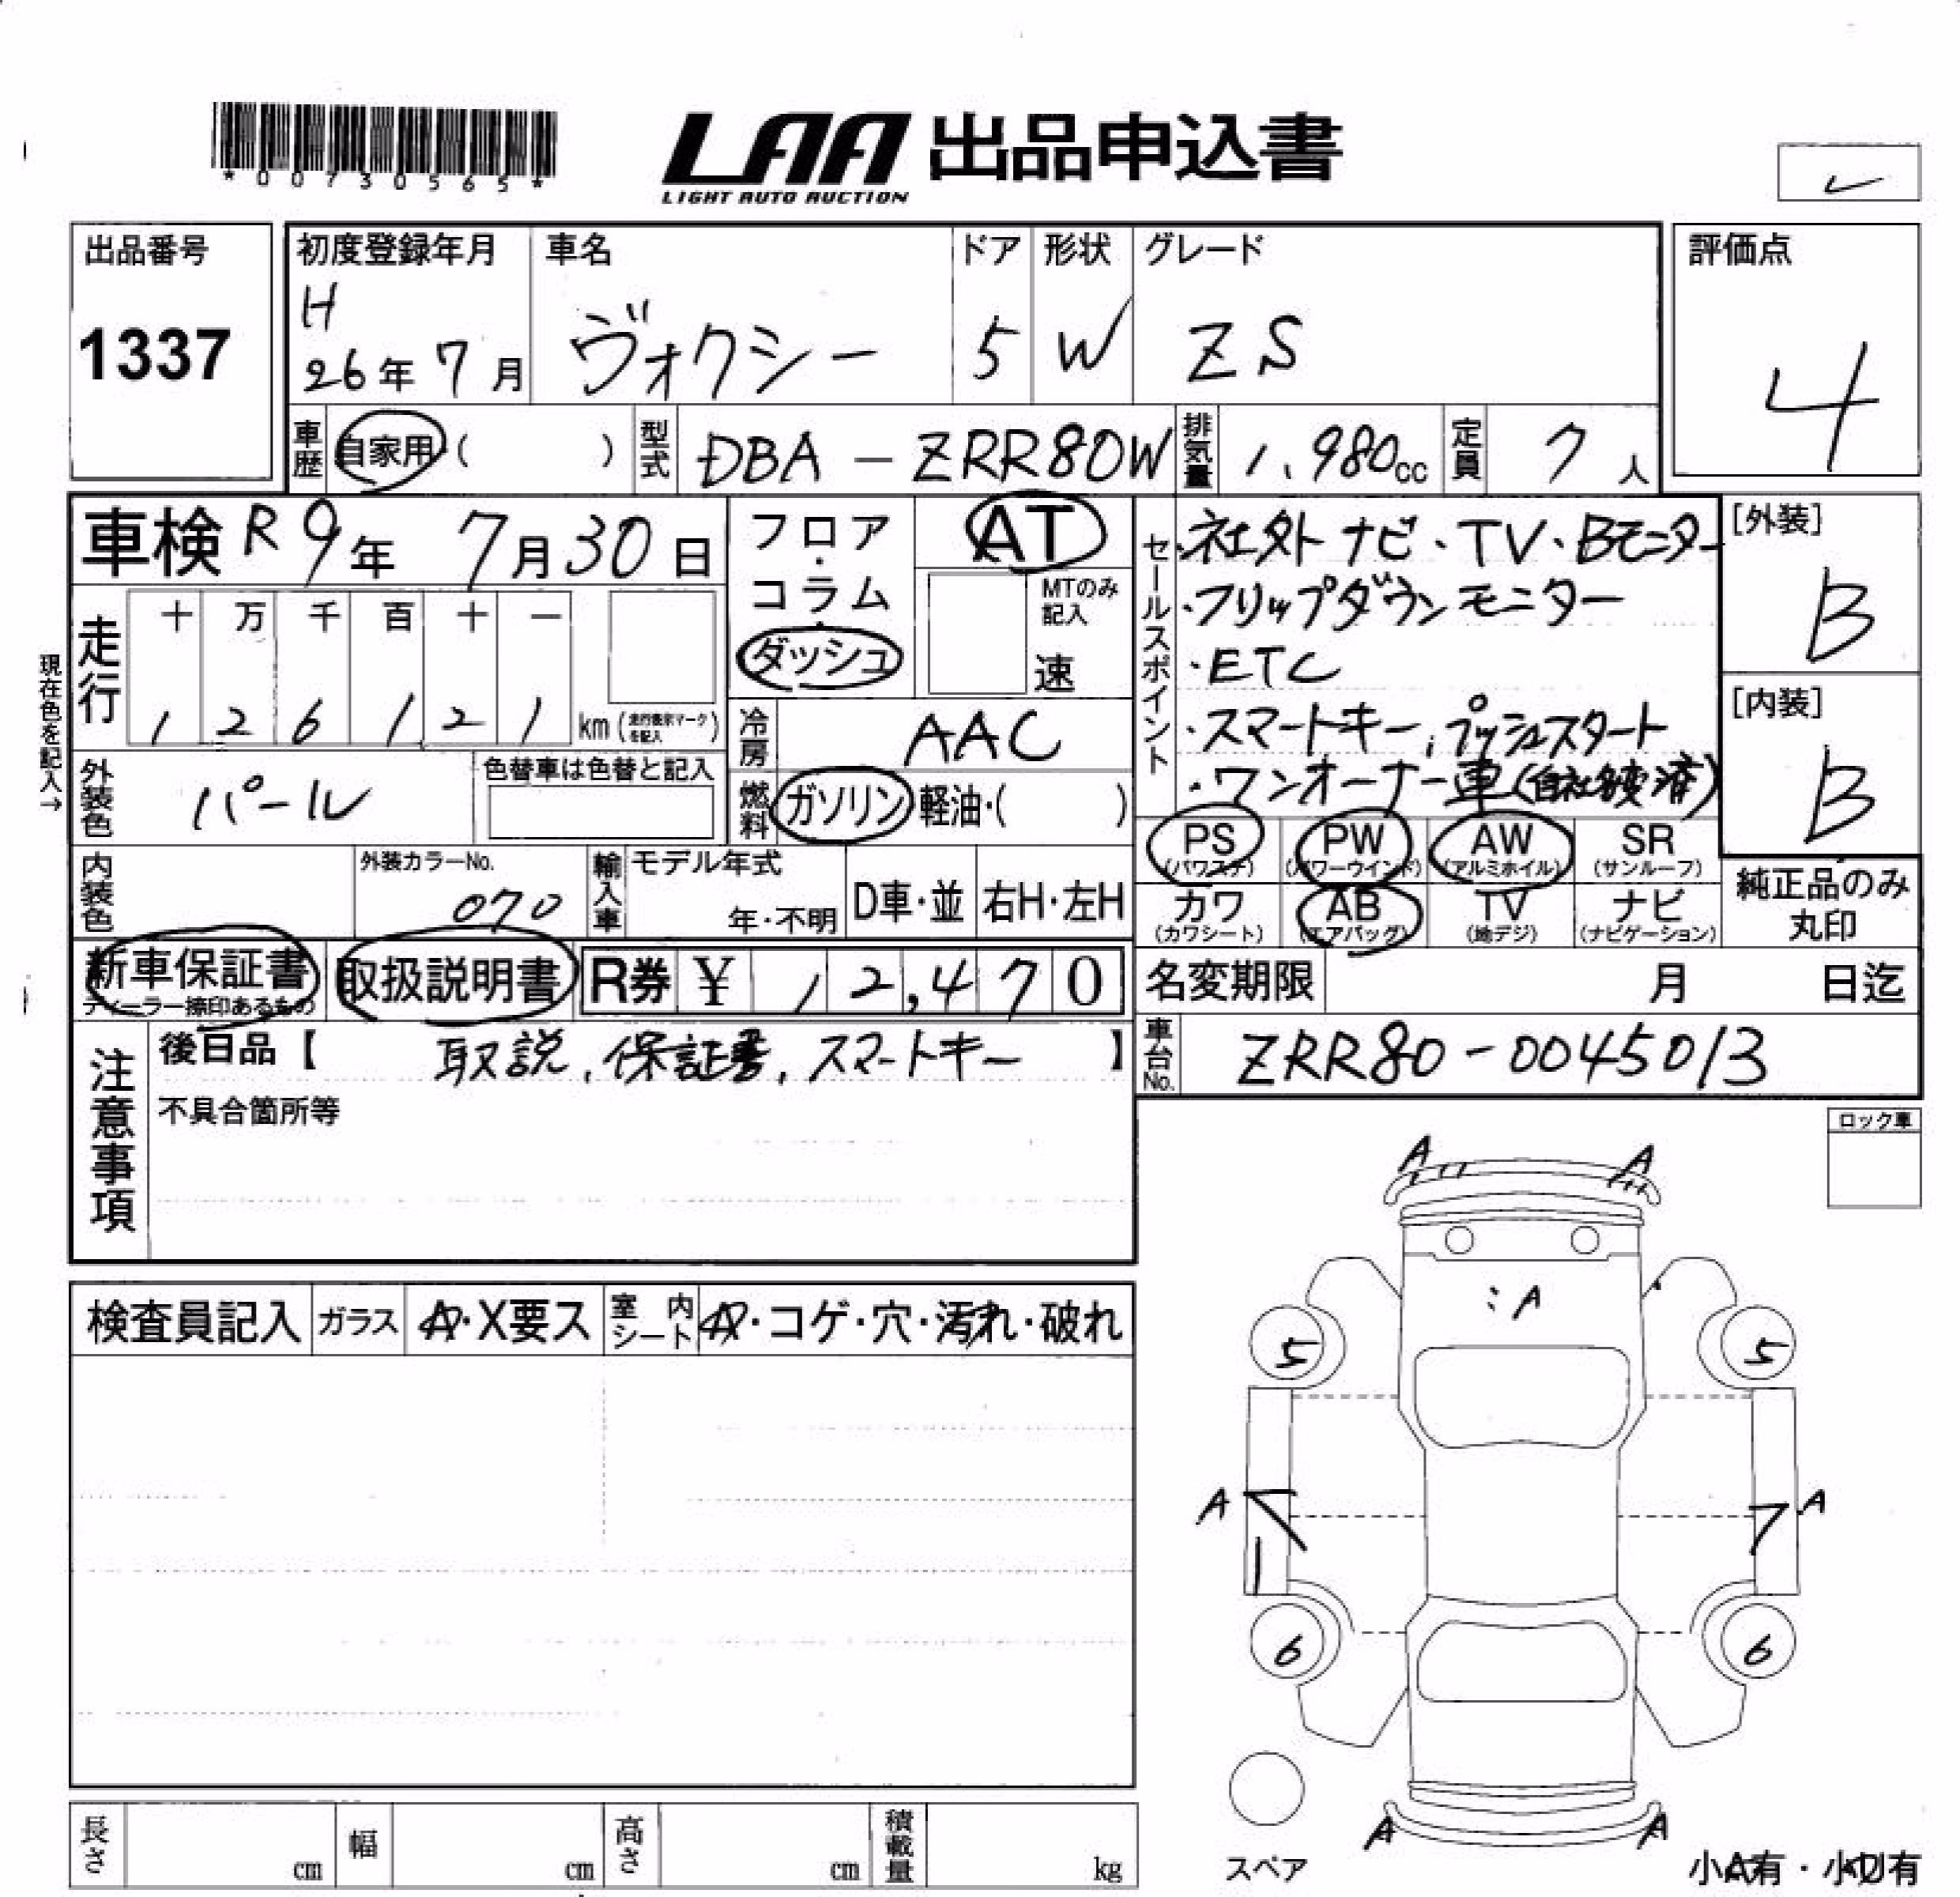 *00730565*
LAA 出品申込書
LIGHT AUTO AUCTION
出品番号
1337
初度登録年月
H
26年 7月
車名
ヴォクシー
ドア
5
形状
W
グレード
ZS
評価点
4
車歴 自家用・( )
型式 DBA-ZRR80W
排気量 1,980cc
定員 7人
車検 R9年 7月30日
走行
十 万 千 百 十 一
1 2 6 1 2 1 km (走行表示マークを記入)
現在色を記入→
外装色 パール
色替車は色替と記入
内装色
外装カラーNo.
070
フロア・コラム・ダッシュ
AT
MTのみ記入
速
冷房 AAC
燃料 ガソリン・軽油・( )
輸入車
モデル年式
年・不明
D車・並
右H・左H
セールスポイント
・社外ナビ・TV・Bモニター
・フリップダウンモニター
・ETC
・スマートキー、プッシュスタート
・ワンオーナー車(自社名変済)
[外装]
B
[内装]
B
PS (パワステ)
PW (パワーウインド)
AW (アルミホイル)
SR (サンルーフ)
カワ (カワシート)
AB (エアバッグ)
TV (地デジ)
ナビ (ナビゲーション)
純正品のみ丸印
新車保証書
ディーラー捺印あるもの
取扱説明書
R券 ¥ 12,470
名変期限 月 日迄
車台No. ZRR80-0045013
注意事項
後日品【 取説、保証書、スマートキー 】
不具合箇所等
ロック車
検査員記入
ガラス A・X要ス
室内シート A・コゲ・穴・汚れ・破れ
A A
:A
5 5
A A
6 6
A A
スペア
小A有・小U有
長さ cm
幅 cm
高さ cm
積載量 kg